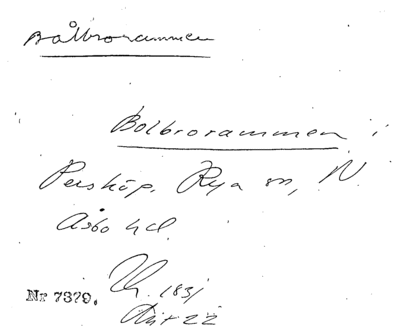 Bålbrorammen
Bolbrorammen i
Perstorp, Rya sn, N.
Åsbo hd.
Nr 7379. 1831
Akt 22